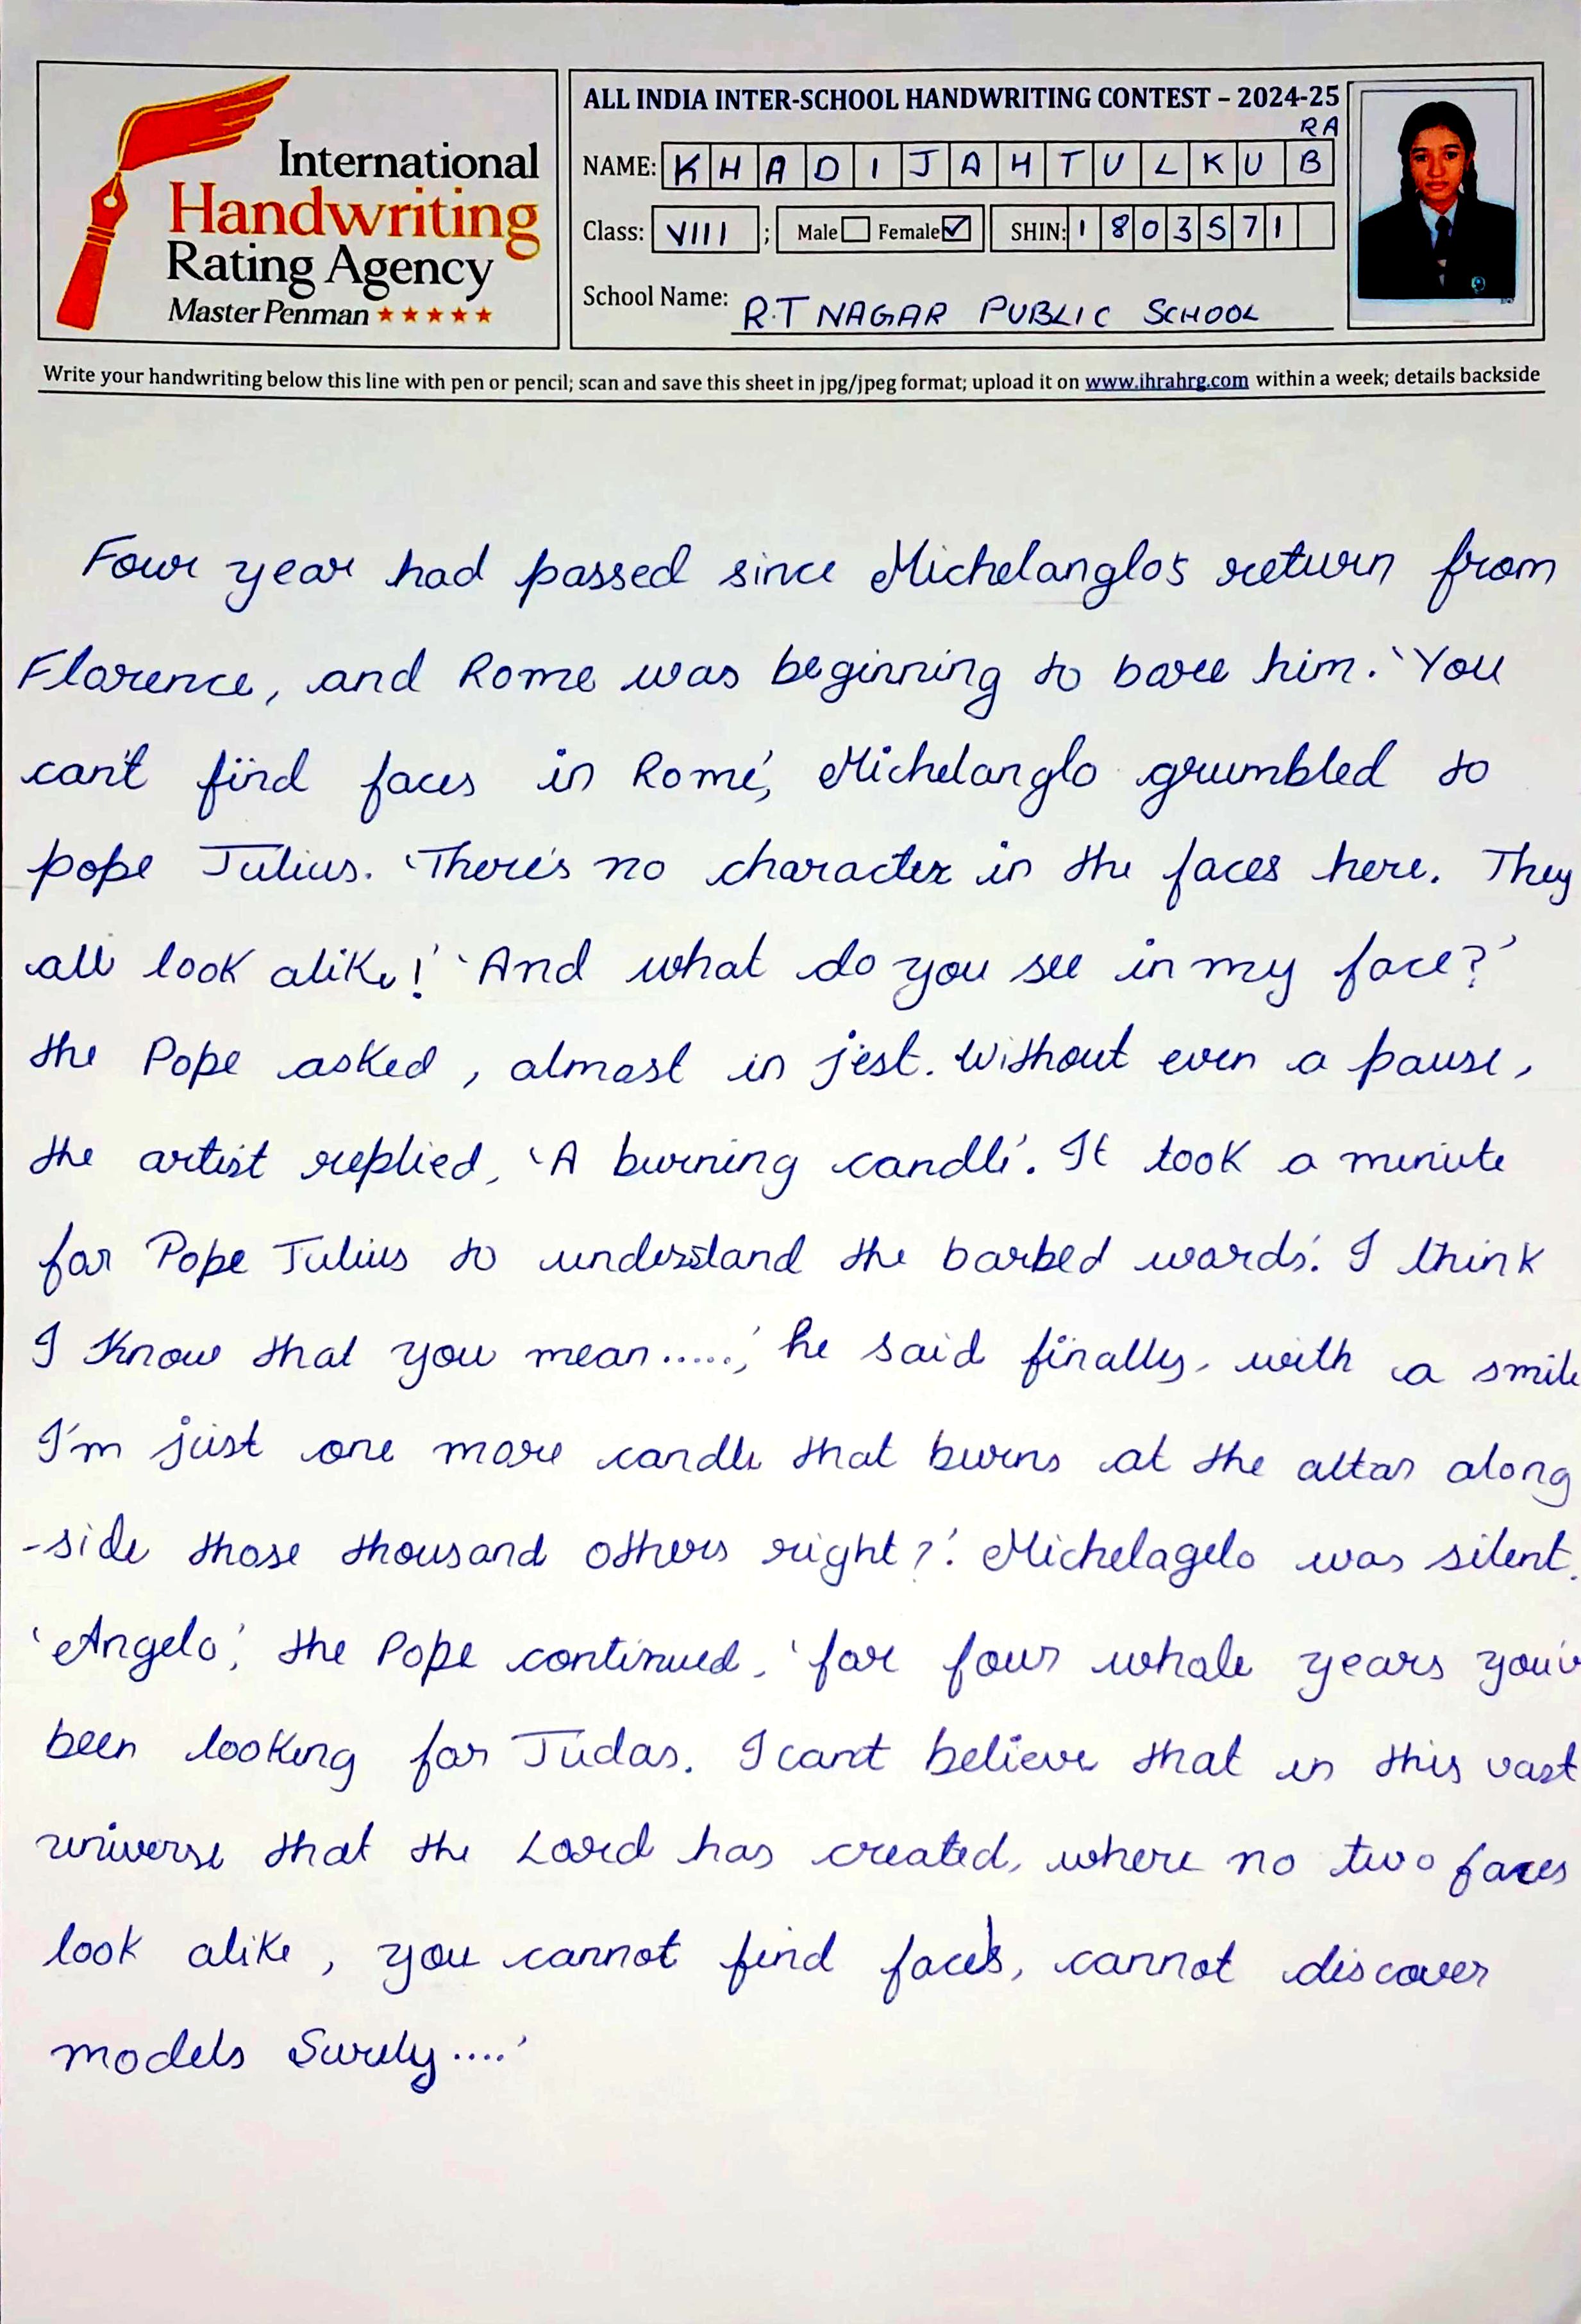 International
Handwriting
Rating Agency
Master Penman ★★★★★
ALL INDIA INTER-SCHOOL HANDWRITING CONTEST – 2024-25
RA
NAME: KHADIJAHTULKUB
Class: VIII ; Male Female ✓ SHIN: 1803571
School Name: R.T NAGAR PUBLIC SCHOOL
Write your handwriting below this line with pen or pencil; scan and save this sheet in jpg/jpeg format; upload it on www.ihrahrg.com within a week; details backside
Four year had passed since Michelanglo's return from
Florence, and Rome was beginning to bore him. 'You
can't find faces in Rome', Michelanglo grumbled to
pope Julius. 'There's no character in the faces here. They
all look alike!' 'And what do you see in my face?'
the Pope asked, almost in jest. Without even a pause,
the artist replied, 'A burning candle'. It took a minute
for Pope Julius to understand the barbed words.' I think
I know that you mean.....,' he said finally, with a smile
I'm just one more candle that burns at the altar along
-side those thousand others right?'. Michelagelo was silent.
'Angelo', the Pope continued, 'for four whole years you'v
been looking for Judas. I can't believe that in this vast
universe that the Lord has created, where no two faces
look alike, you cannot find faces, cannot discover
models Surely....'